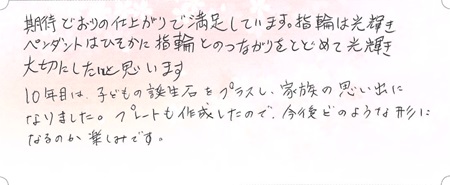 期待どおりの仕上がりで満足しています。指輪は光輝き
ペンダントはひそかに指輪とのつながりをとどめて光輝き
大切にしたいと思います
10年目は、子どもの誕生石をプラスし、家族の思い出に
なりました。プレートも作成したので、今後どのような形に
なるのか楽しみです。